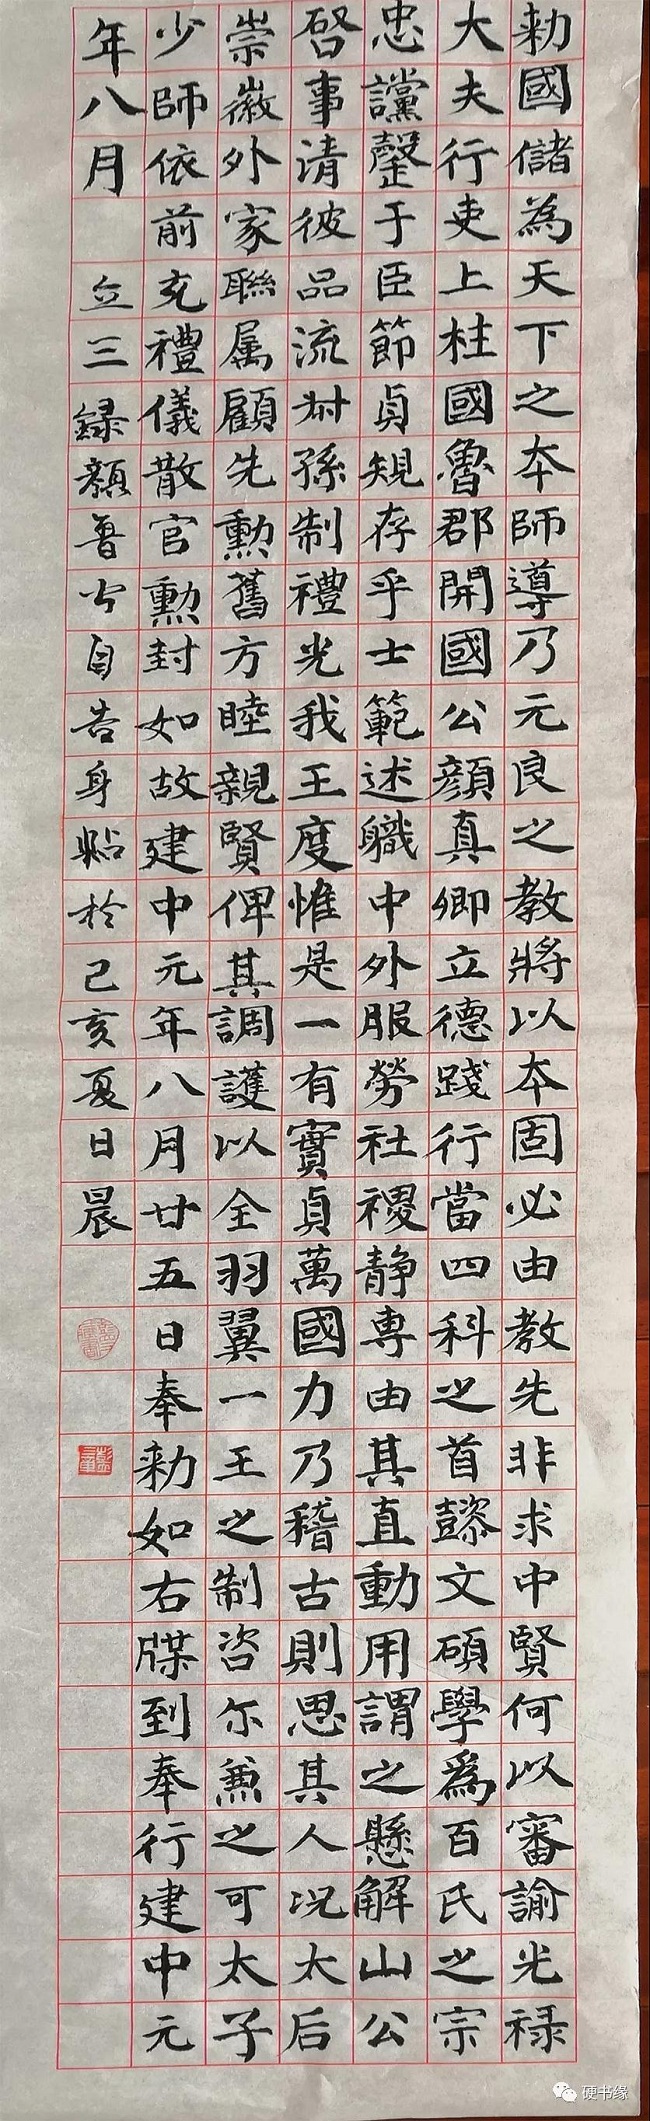 勅國儲為天下之本師導乃元良之教將以本固必由教先非求中賢何以審諭光禄
大夫行吏上柱國魯郡開國公顔真卿立德踐行當四科之首懿文碩學爲百氏之宗
忠讜罄于臣節貞規存乎士範述職中外服勞社稷静専由其直動用謂之懸解山公
啓事清彼品流叔孫制禮光我王度惟是一有實貞萬國力乃稽古則思其人况太后
崇徽外家聯属顧先勲舊方睦親賢俾其調護以全羽翼一王之制咨尔兼之可太子
少師依前充禮儀散官勲封如故建中元年八月廿五日奉勅如右牒到奉行建中元
年八月 立三録顔魯公自告身帖於己亥夏日晨
硬书缘